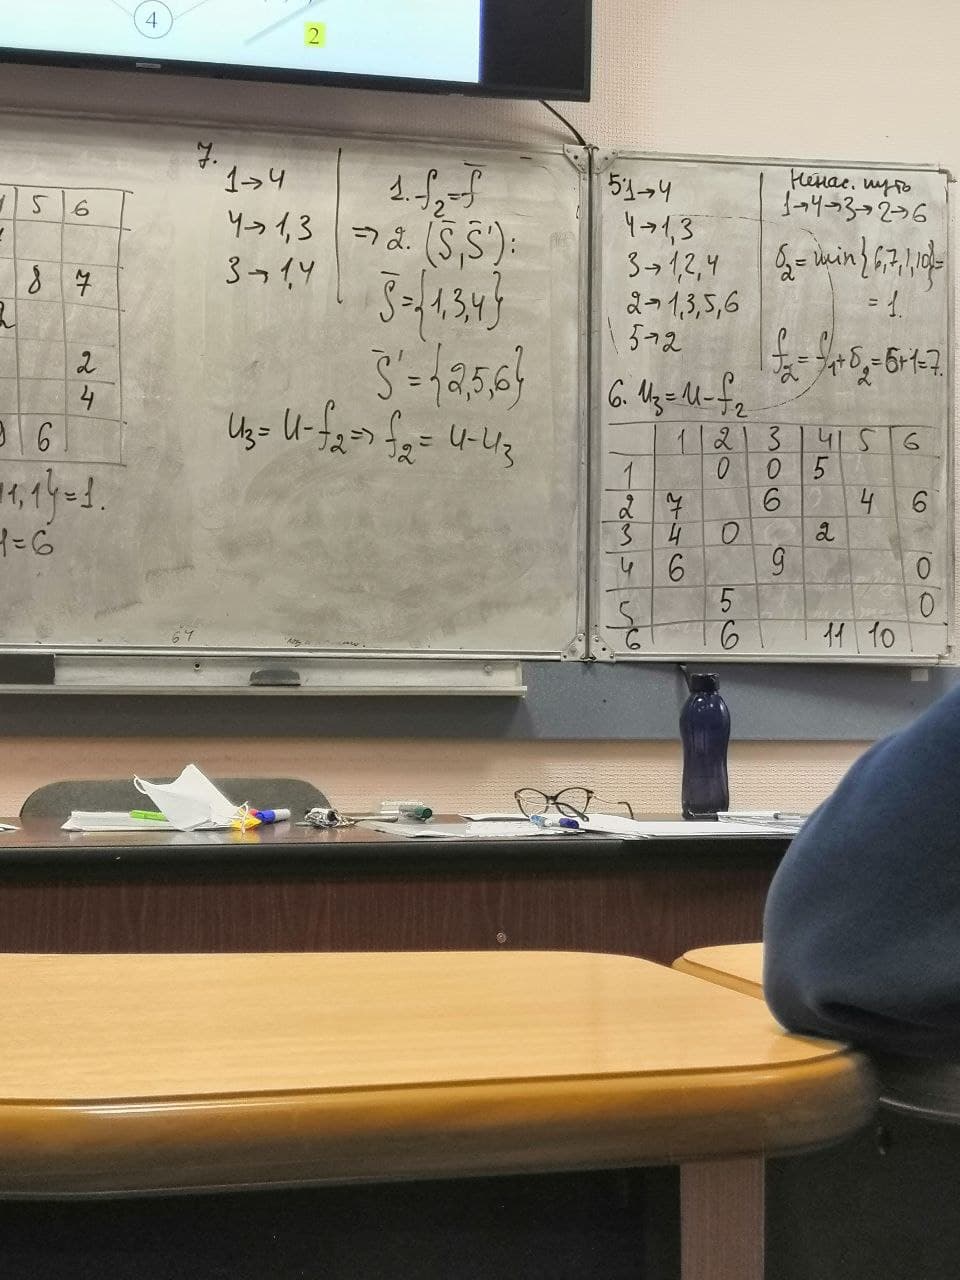 4
2
5 6
8 7
2
2
4
6
11, 1} = 1.
1 = 6
7.
1→4
4→1,3
3→1,4
1. f₂ = f̄
⇒ 2. (S̄, S̄'):
S̄ = {1,3,4}
S̄' = {2,5,6}
u₃ = u - f₂ ⇒ f₂ = u - u₃
5. 1→4
4→1,3
3→1,2,4
2→1,3,5,6
5→2
Ненас. путь
1→4→3→2→6
δ₂ = min{6,7,1,10} =
= 1.
f₂ = f₁ + δ₂ = 6+1 = 7.
6. u₃ = u - f₂
1 2 3 4 5 6
1 0 0 5
2 7 6 4 6
3 4 0 2
4 6 9 0
5 5 0
6 6 11 10